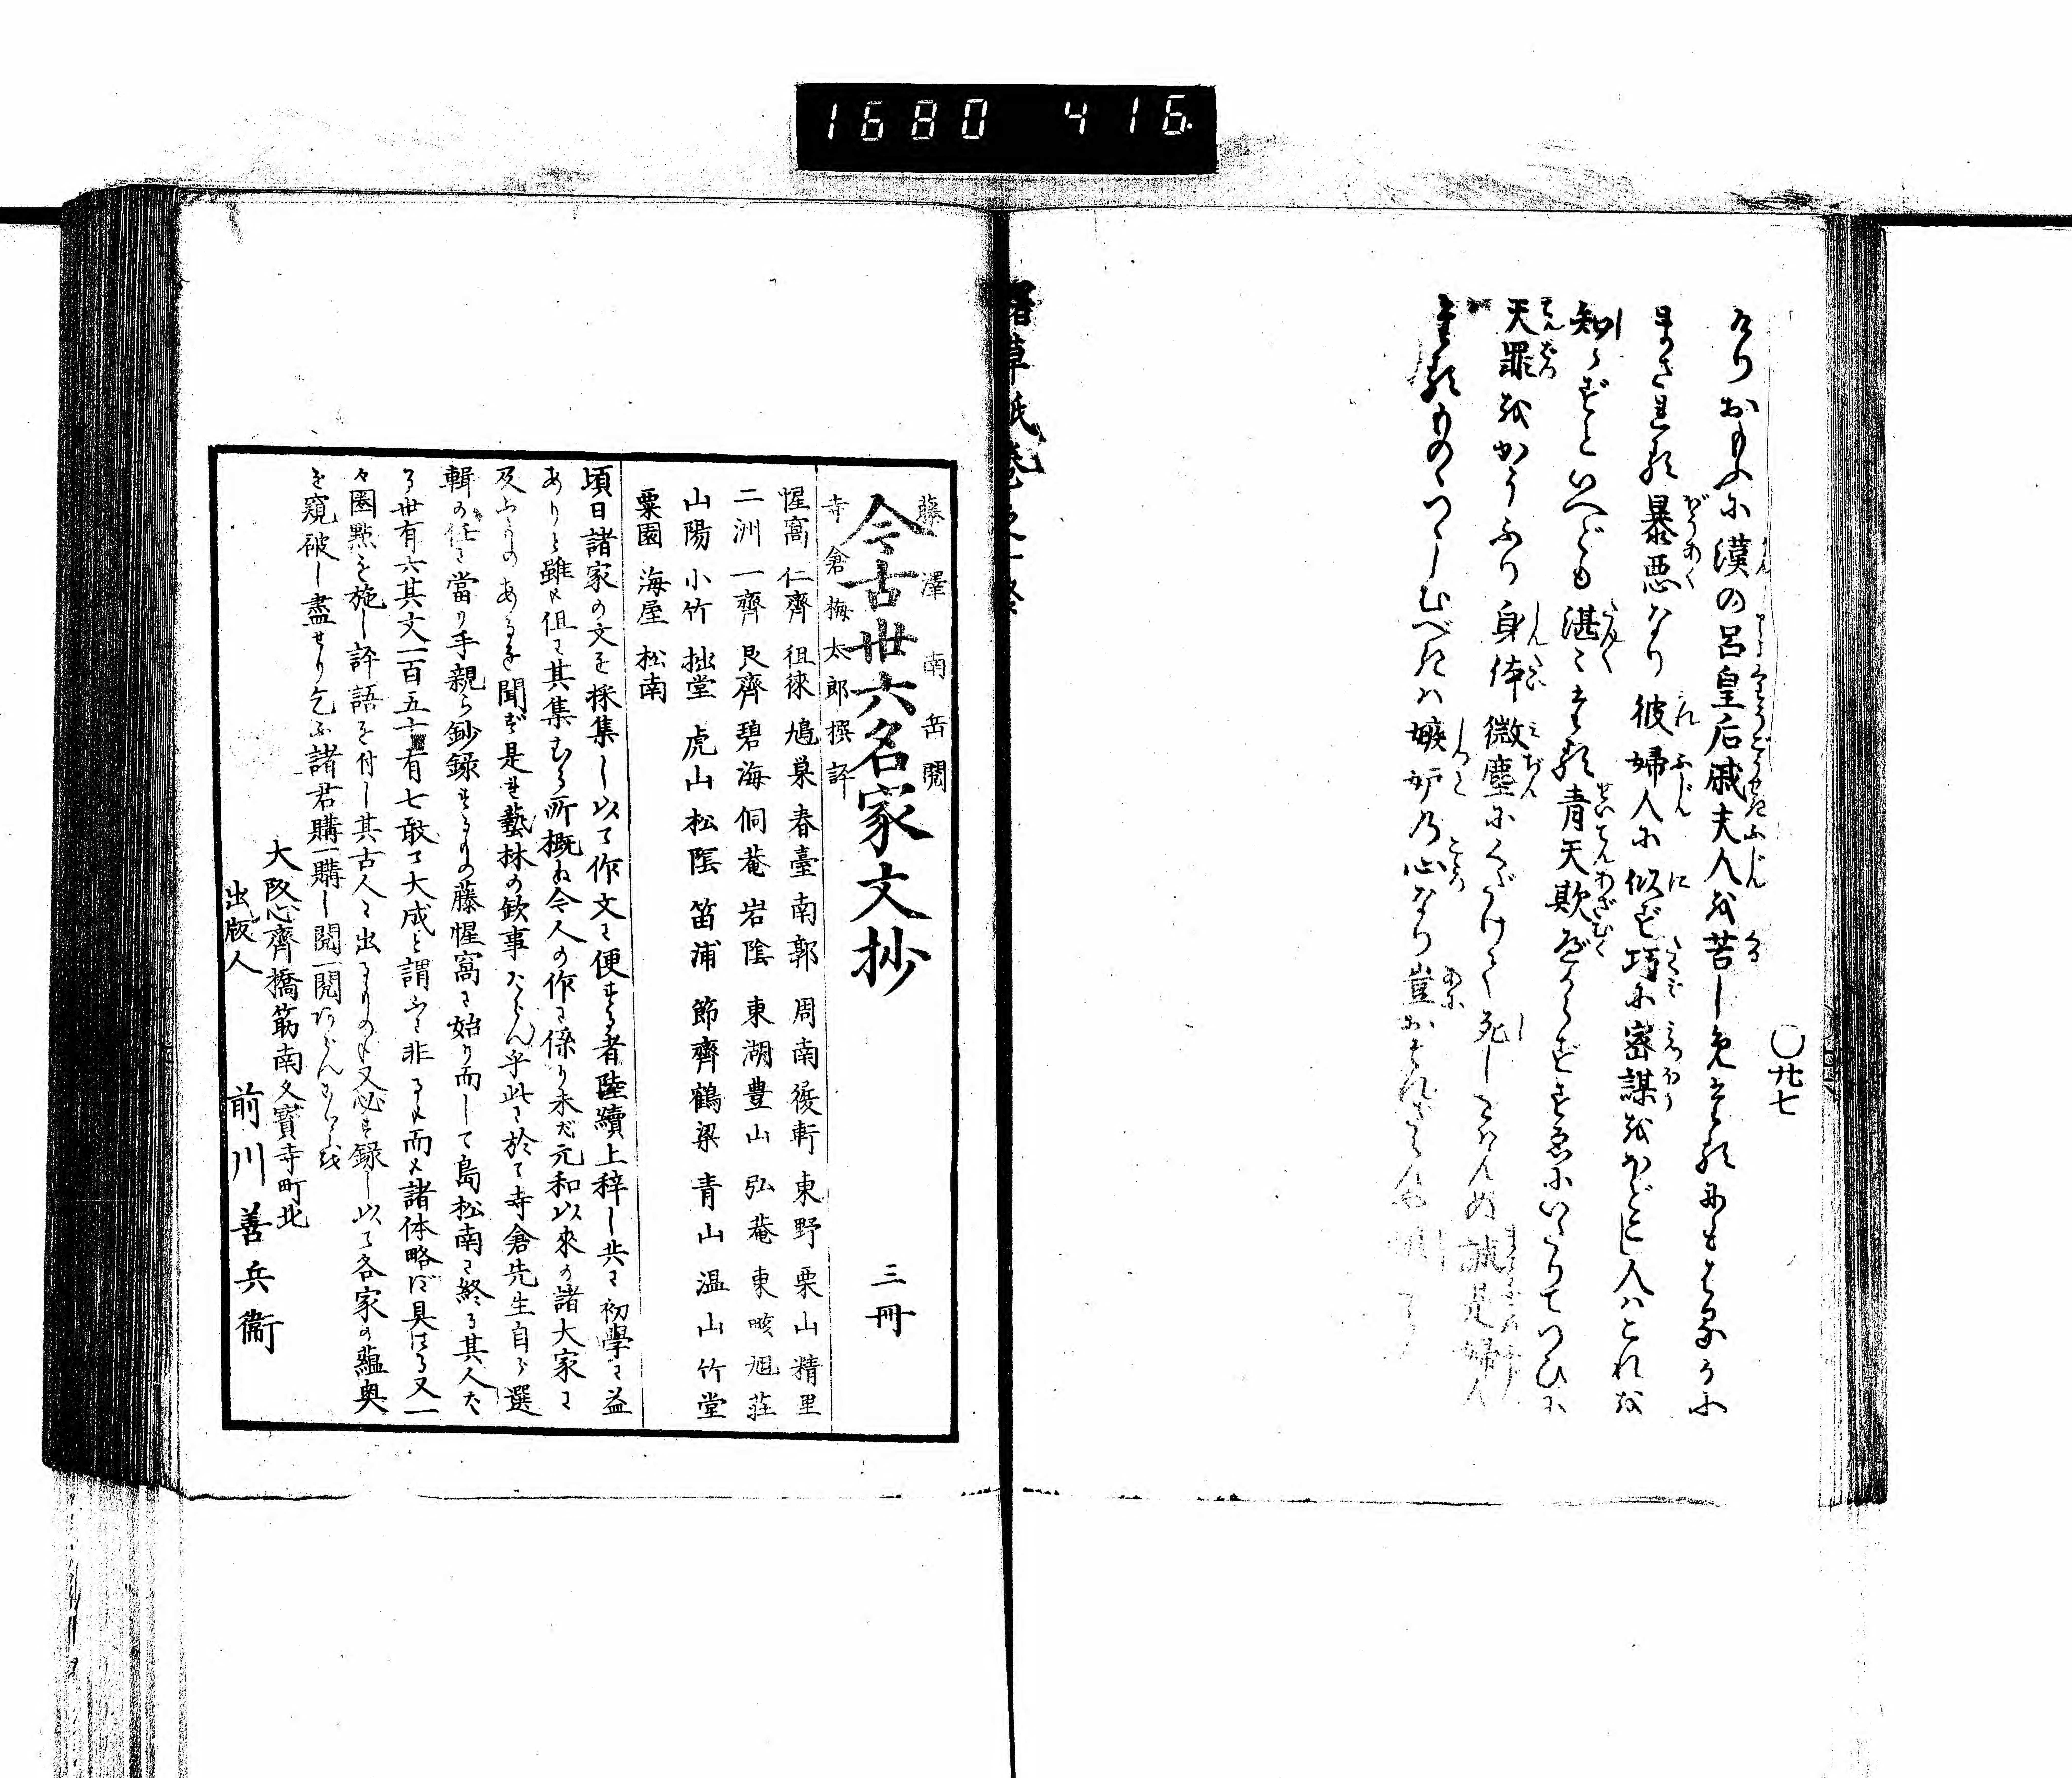 1680 416
○廿七
けりおもふに漢の呂皇后戚夫人を苦しめ
まされる暴悪なり彼婦人に似ず巧に密謀をほどこし人はこれを
知らずといへども湛々たる青天欺べからずすゑにいたりてつひに
天罪をかうふり身体微塵にくだけて死し
ものゝつゝしむべきは嫉妬の心なり豈おそれざらんや
藤澤南岳閱
今古卅六名家文抄 三冊
寺倉梅太郎撰評
惺窩 仁齊 徂徠 鳩巣 春臺 南郭 周南 復軒 東野 栗山 精里
二洲 一齊 艮齊 碧海 侗菴 岩陰 東湖 豊山 弘菴 東畡 旭荘
山陽 小竹 拙堂 虎山 松陰 笛浦 節齊 鶴梁 青山 温山 竹堂
粟園 海屋 松南
頃日諸家の文を採集し以て作文に便する者陸續上梓し共に初學に益
ありと雖も但に其集むる所概ね今人の作に係り未だ元和以來の諸大家に
及ふものあるを聞ず是れ藝林の欽事ならん乎此に於て寺倉先生自ら選
輯の任に當り手親ら鈔録するもの藤惺窩に始り而して島松南に終る其人た
る卅有六其文一百五十有七敢て大成と謂ふに非るも而も諸体略ぼ具はる又一
々圏點を施し評語を付し其古人に出るものも又必ず録し以て各家の蘊奥
を窺破し盡せり乞ふ諸君購一購し閱一閱あらんことを
大阪心齊橋筋南久寶寺町北
出版人 前川善兵衞